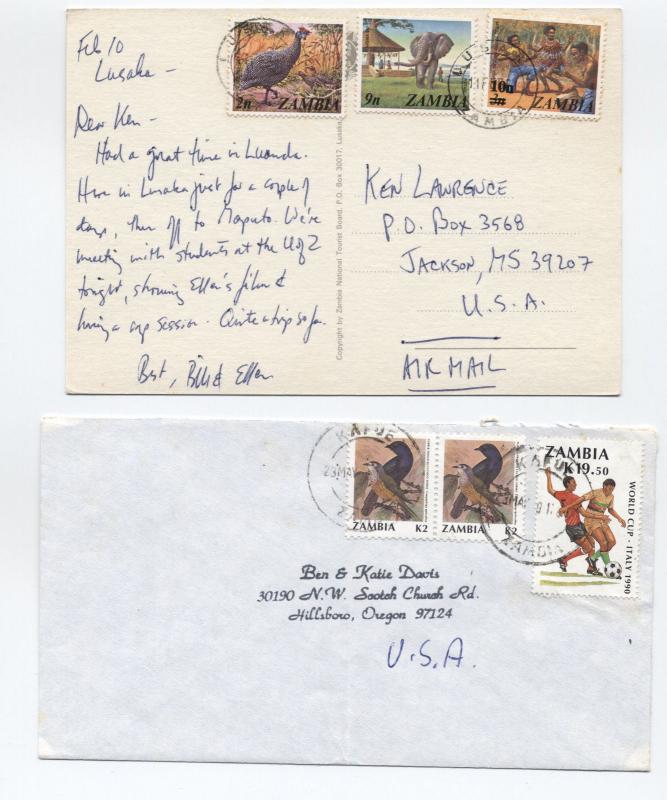 Feb 10
Lusaka –
Dear Ken –
Had a great time in Luanda.
Here in Lusaka just for a couple of
days, then off to Maputo. We're
meeting with students at the U of Z
tonight, showing Ellen's film &
having a rap session. Quite a trip so far.
Best, Bill & Ellen
2n ZAMBIA
9n ZAMBIA
10n
ZAMBIA
LUSAKA
ZAMBIA
Copyright by Zambia National Tourist Board, P.O. Box 30017, Lusaka
KEN LAWRENCE
P.O. BOX 3568
JACKSON, MS 39207
U.S.A.
AIR MAIL
KAFUE
23 MAY
ZAMBIA K2
ZAMBIA K2
KAFUE
ZAMBIA
ZAMBIA
K19.50
WORLD CUP - ITALY 1990
Ben & Katie Davis
30190 N.W. Scotch Church Rd.
Hillsboro, Oregon 97124
U.S.A.